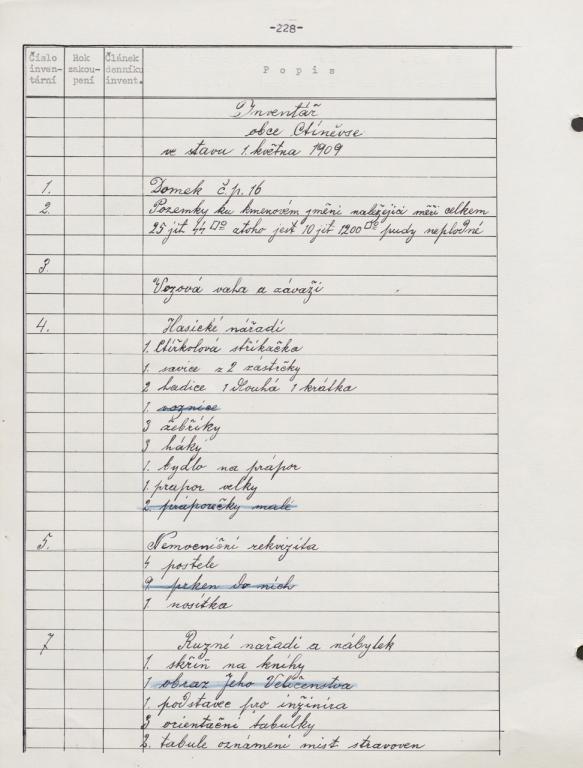 -228-
Číslo inven- tární
Rok zakou- pení
Článek denníku invent.
Popis
Inventář
obce Ctiněvse
ve stavu 1. května 1909
1. Domek č.p. 16
2. Pozemky ku kmenovém jmění naležející měří celkem
25 jit. 44 □° atoho jest 10 jit 1200 □° pudy neplodné
3.
Vozová vaha a závaží
4. Hasické nářadí
1. Čtířkolová stříkačka
1. savice z 2 zástrčky
2 hadice 1 dlouhá 1 krátka
1. voznice
3 žebříky
3 háky
1. bydlo na prápor
1. prapor velky
2. práporečky malé
5. Nemocniční rekvizita
4 postele
9. prken do nich
1 nosítka
7 Ruzné nařadí a nábytek
1. skříň na knihy
1 obraz Jeho Veličenstva
1. podstavec pro inžiníra
3 orientační tabulky
2. tabule oznámení mist stravoven